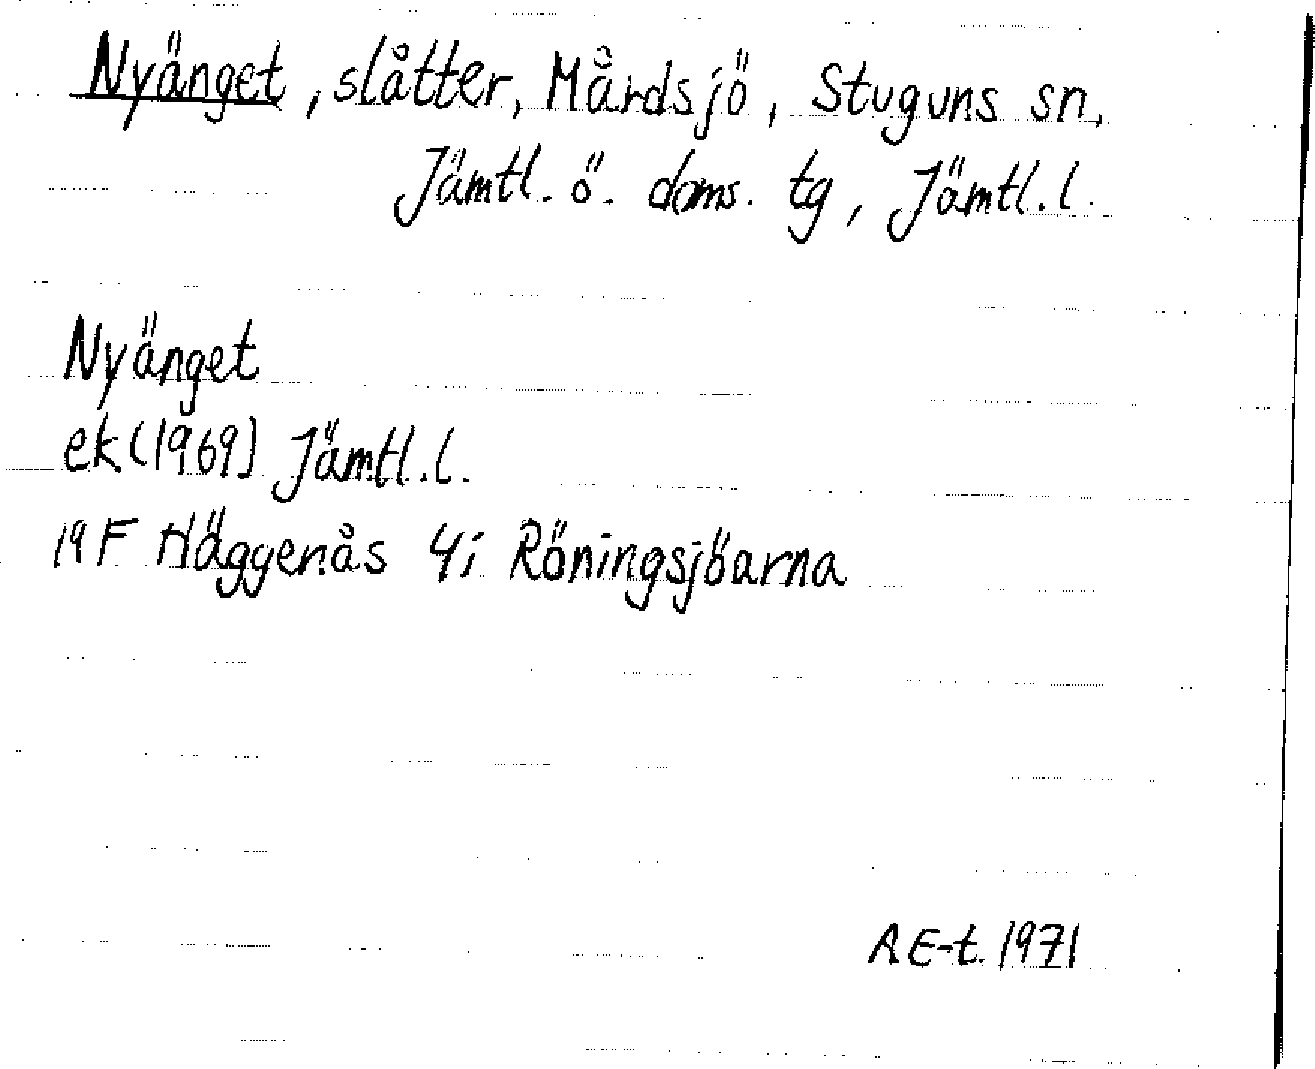 Nyänget, slåtter, Mårdsjö, Stuguns sn,
Jämtl. ö. doms. tg, Jämtl.l.
Nyänget
ek(1969) Jämtl.l.
19F Häggenås 4i Röningsjöarna
A E-t. 1971